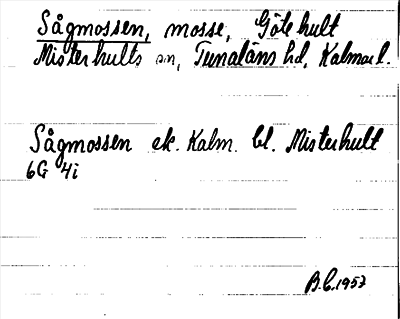 Sågmossen, mosse, Götehult
Misterhults sn, Tunaläns hd, Kalmar l.
Sågmossen ek. Kalm. bl. Misterhult
6G 4i
B.C. 1957